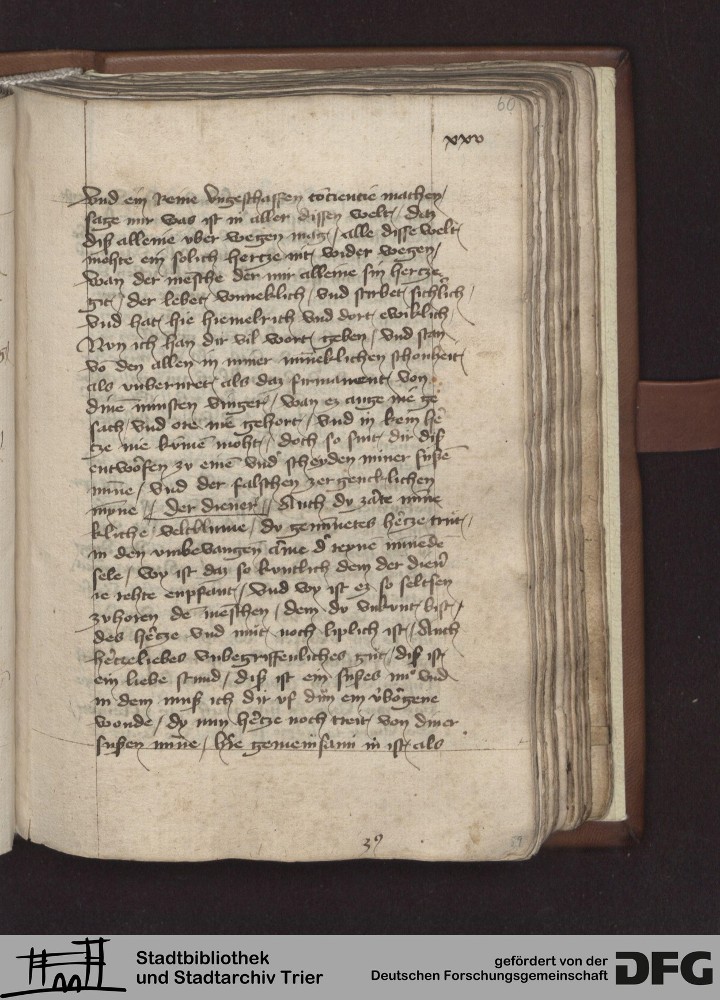 60
xxv
Vnd ein Reine vngeschaffen conciencie machen /
sage mir was ist in aller dissen welt / daz
diß alleine vber wegen mag / alle disse welt
mohte ein solich hertze nit wider wegen /
wan der mēsche der mir alleine sin hertze
git / der lebet wnneklich / vnd stirbet sichlich /
vnd hat hie hiemelrich vnd dort ewiklich
Nvn ich han dir vil wort geben / vnd stan
vo den allen in miner mīneklichen schonheit
als vnberuret als daz firmament von
dinē minsten vinger / wan ez auge nie ge
sach / vnd ore nie gehort / vnd in kein her
tze nie kvmē moht / doch so sint dir diß
entworfen zv einē vnd scheyden miner sußē
mīne / vnd der falschen zergencklichen
myne // der diener // Auch dv zarte mīne
kliche veltblume / dv geminetes hertze trut /
in den vmbevangen arme der reyne minēde
sele / wy ist daz so kuntlich dem der dich
ie rehte enpfant / vnd wy ist ez so seltsen
zvhoren dē mēschen / dem dv vnkunt bist /
des hertze vnd mut noch liplich ist / Auch
hertzeliebes vnbegriffenliches gut / diß ist
ein liebe stund / diß ist ein sußes nv vnd
in dem muß ich dir vf dun ein vborgene
wonde / dy min hertze noch treit von diner
sußen mīne / h're gemeinsami in ist als
39
Stadtbibliothek
und Stadtarchiv Trier
gefördert von der
Deutschen Forschungsgemeinschaft
DFG